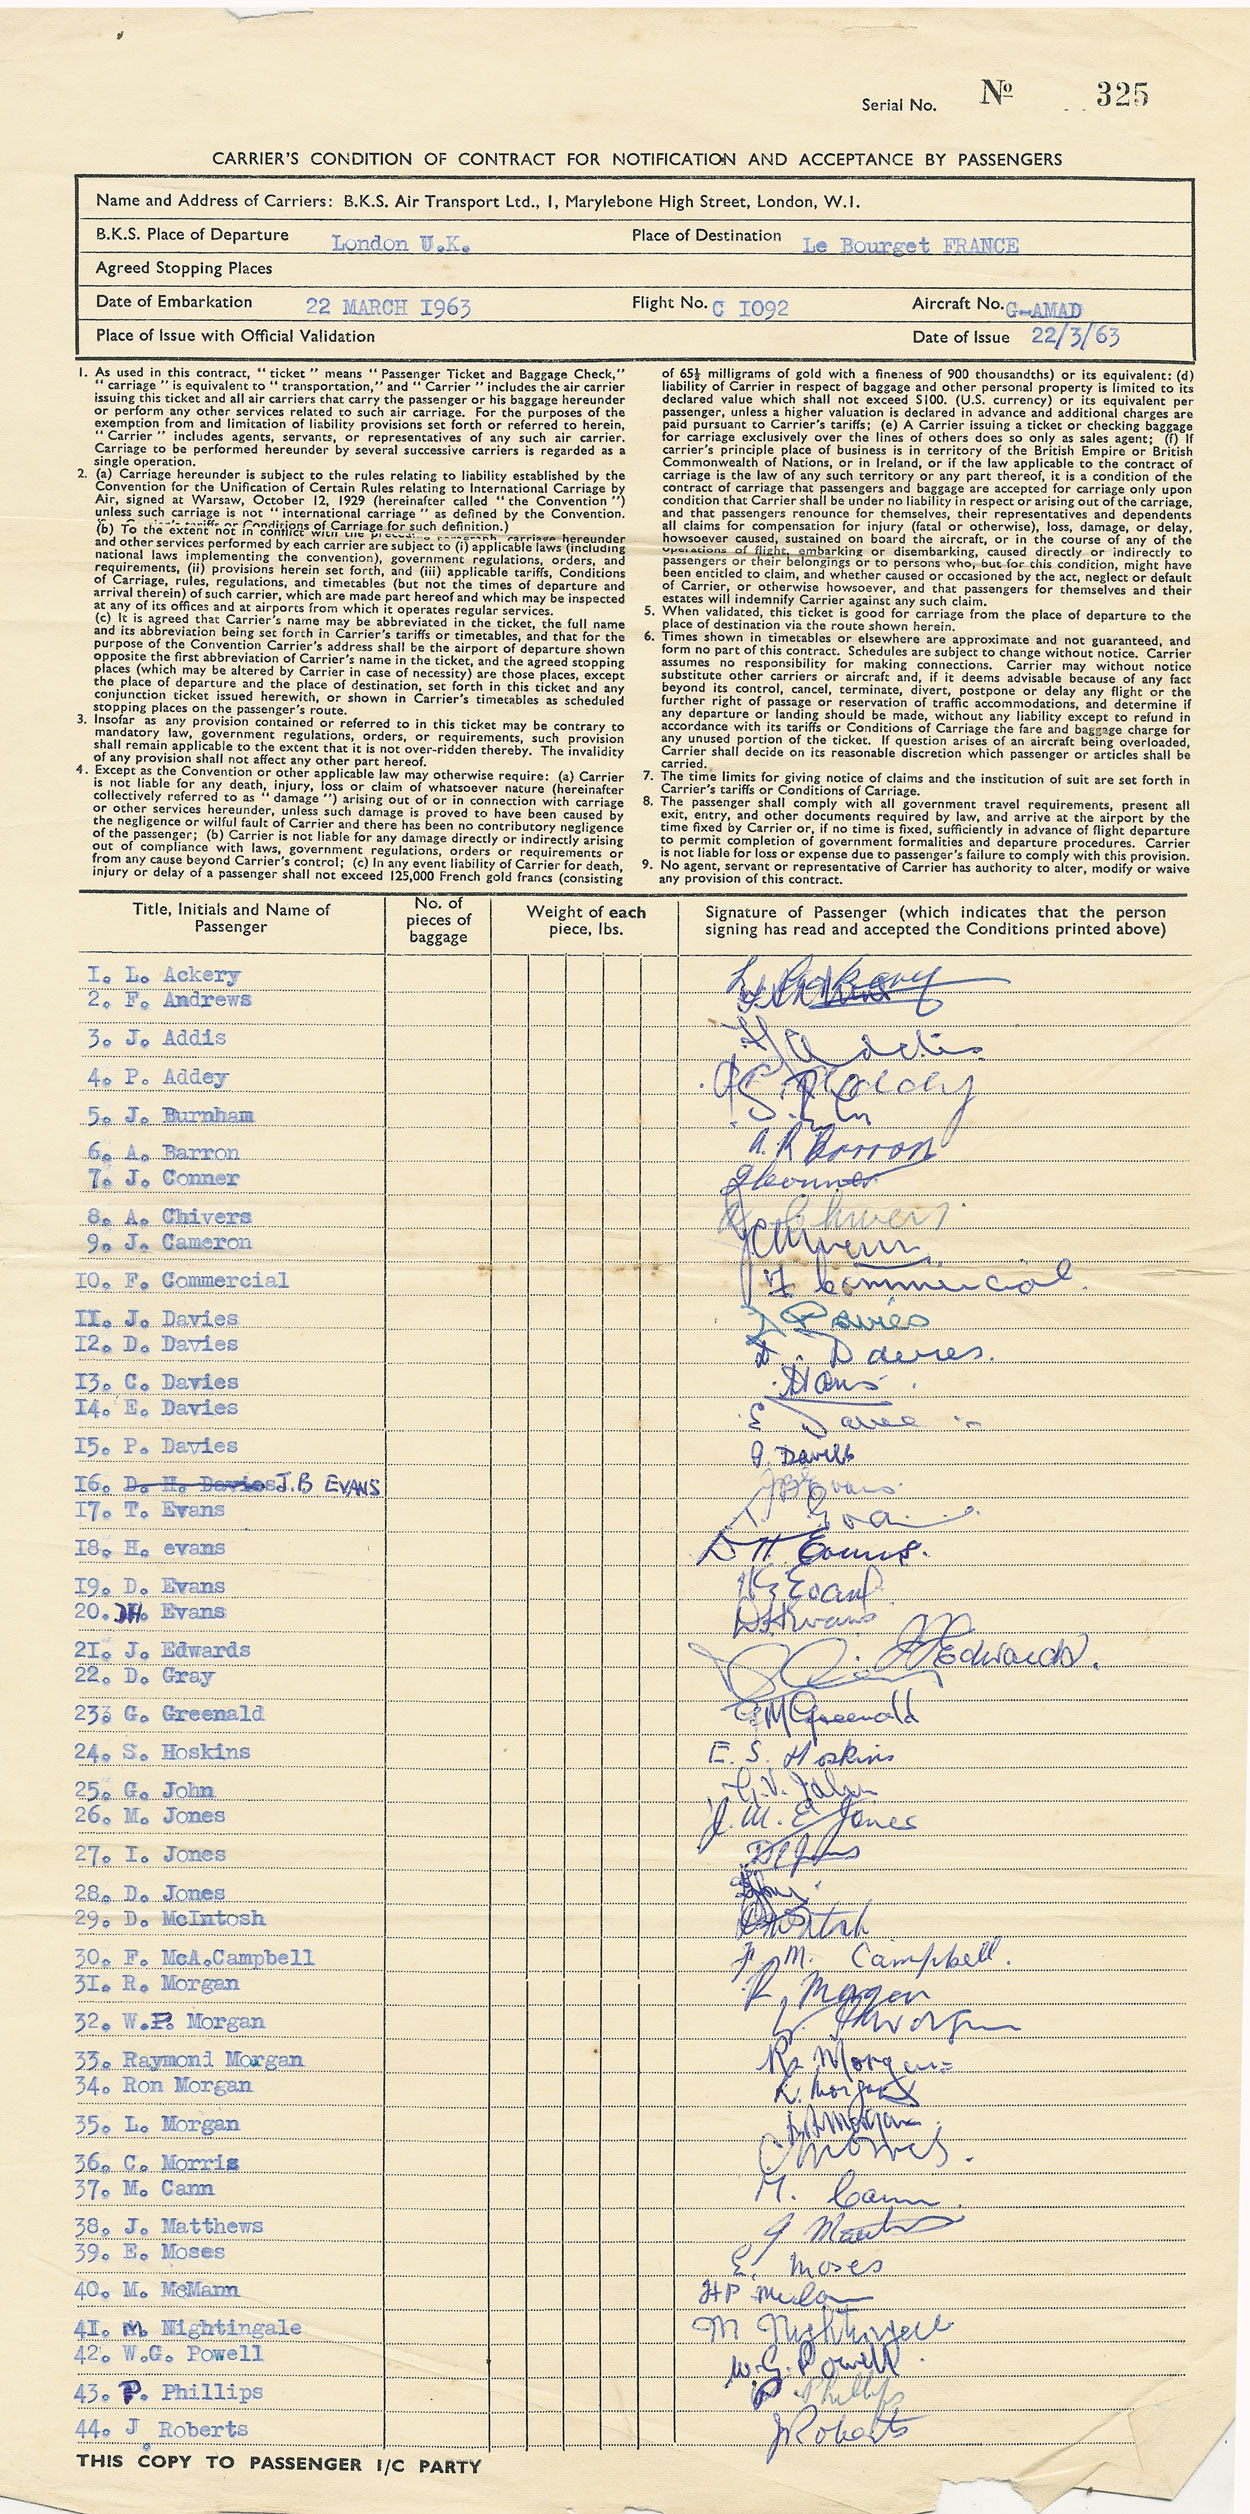 Serial No. No 325
CARRIER'S CONDITION OF CONTRACT FOR NOTIFICATION AND ACCEPTANCE BY PASSENGERS
Name and Address of Carriers: B.K.S. Air Transport Ltd., 1, Marylebone High Street, London, W.1.
B.K.S. Place of Departure London U.K. Place of Destination Le Bourget FRANCE
Agreed Stopping Places
Date of Embarkation 22 MARCH 1963 Flight No. C 1092 Aircraft No. G-AMAD
Place of Issue with Official Validation Date of Issue 22/3/63
1. As used in this contract, "ticket" means "Passenger Ticket and Baggage Check,"
"carriage" is equivalent to "transportation," and "Carrier" includes the air carrier
issuing this ticket and all air carriers that carry the passenger or his baggage hereunder
or perform any other services related to such air carriage. For the purposes of the
exemption from and limitation of liability provisions set forth or referred to herein,
"Carrier" includes agents, servants, or representatives of any such air carrier.
Carriage to be performed hereunder by several successive carriers is regarded as a
single operation.
2. (a) Carriage hereunder is subject to the rules relating to liability established by the
Convention for the Unification of Certain Rules relating to International Carriage by
Air, signed at Warsaw, October 12, 1929 (hereinafter called "the Convention")
unless such carriage is not "international carriage" as defined by the Convention.
Carrier's tariffs or Conditions of Carriage for such definition.)
(b) To the extent not in conflict with the preceding paragraph, carriage hereunder
and other services performed by each carrier are subject to (i) applicable laws (including
national laws implementing the convention), government regulations, orders, and
requirements, (ii) provisions herein set forth, and (iii) applicable tariffs, Conditions
of Carriage, rules, regulations, and timetables (but not the times of departure and
arrival therein) of such carrier, which are made part hereof and which may be inspected
at any of its offices and at airports from which it operates regular services.
(c) It is agreed that Carrier's name may be abbreviated in the ticket, the full name
and its abbreviation being set forth in Carrier's tariffs or timetables, and that for the
purpose of the Convention Carrier's address shall be the airport of departure shown
opposite the first abbreviation of Carrier's name in the ticket, and the agreed stopping
places (which may be altered by Carrier in case of necessity) are those places, except
the place of departure and the place of destination, set forth in this ticket and any
conjunction ticket issued herewith, or shown in Carrier's timetables as scheduled
stopping places on the passenger's route.
3. Insofar as any provision contained or referred to in this ticket may be contrary to
mandatory law, government regulations, orders, or requirements, such provision
shall remain applicable to the extent that it is not over-ridden thereby. The invalidity
of any provision shall not affect any other part hereof.
4. Except as the Convention or other applicable law may otherwise require: (a) Carrier
is not liable for any death, injury, loss or claim of whatsoever nature (hereinafter
collectively referred to as "damage") arising out of or in connection with carriage
or other services hereunder, unless such damage is proved to have been caused by
the negligence or wilful fault of Carrier and there has been no contributory negligence
of the passenger; (b) Carrier is not liable for any damage directly or indirectly arising
out of compliance with laws, government regulations, orders or requirements or
from any cause beyond Carrier's control; (c) In any event liability of Carrier for death,
injury or delay of a passenger shall not exceed 125,000 French gold francs (consisting
of 65½ milligrams of gold with a fineness of 900 thousandths) or its equivalent: (d)
liability of Carrier in respect of baggage and other personal property is limited to its
declared value which shall not exceed $100. (U.S. currency) or its equivalent per
passenger, unless a higher valuation is declared in advance and additional charges are
paid pursuant to Carrier's tariffs; (e) A Carrier issuing a ticket or checking baggage
for carriage exclusively over the lines of others does so only as sales agent; (f) If
carrier's principle place of business is in territory of the British Empire or British
Commonwealth of Nations, or in Ireland, or if the law applicable to the contract of
carriage is the law of any such territory or any part thereof, it is a condition of the
contract of carriage that passengers and baggage are accepted for carriage only upon
condition that Carrier shall be under no liability in respect or arising out of the carriage,
and that passengers renounce for themselves, their representatives and dependents
all claims for compensation for injury (fatal or otherwise), loss, damage, or delay,
howsoever caused, sustained on board the aircraft, or in the course of any of the
operations of flight, embarking or disembarking, caused directly or indirectly to
passengers or their belongings or to persons who, but for this condition, might have
been entitled to claim, and whether caused or occasioned by the act, neglect or default
of Carrier, or otherwise howsoever, and that passengers for themselves and their
estates will indemnify Carrier against any such claim.
5. When validated, this ticket is good for carriage from the place of departure to the
place of destination via the route shown herein.
6. Times shown in timetables or elsewhere are approximate and not guaranteed, and
form no part of this contract. Schedules are subject to change without notice. Carrier
assumes no responsibility for making connections. Carrier may without notice
substitute other carriers or aircraft and, if it deems advisable because of any fact
beyond its control, cancel, terminate, divert, postpone or delay any flight or the
further right of passage or reservation of traffic accommodations, and determine if
any departure or landing should be made, without any liability except to refund in
accordance with its tariffs or Conditions of Carriage the fare and baggage charge for
any unused portion of the ticket. If question arises of an aircraft being overloaded,
Carrier shall decide on its reasonable discretion which passenger or articles shall be
carried.
7. The time limits for giving notice of claims and the institution of suit are set forth in
Carrier's tariffs or Conditions of Carriage.
8. The passenger shall comply with all government travel requirements, present all
exit, entry, and other documents required by law, and arrive at the airport by the
time fixed by Carrier or, if no time is fixed, sufficiently in advance of flight departure
to permit completion of government formalities and departure procedures. Carrier
is not liable for loss or expense due to passenger's failure to comply with this provision.
9. No agent, servant or representative of Carrier has authority to alter, modify or waive
any provision of this contract.
Title, Initials and Name of Passenger
No. of pieces of baggage
Weight of each piece, lbs.
Signature of Passenger (which indicates that the person
signing has read and accepted the Conditions printed above)
1. L. Ackery L. Ackery
2. F. Andrews
3. J. Addis J Addis
4. P. Addey P Addey
5. J. Burnham
6. A. Barron A. R Barron
7. J. Conner J Conner
8. A. Chivers A. Chivers
9. J. Cameron
10. F. Commercial F Commercial.
11. J. Davies J Davies
12. D. Davies D. Davies.
13. C. Davies
14. E. Davies E Davies
15. P. Davies P. Davies
16. D. H. Davies J.B EVANS J B Evans
17. T. Evans T. Evans
18. H. evans D H Evans.
19. D. Evans Evans
20. DH. Evans D H Evans
21. J. Edwards J Edwards.
22. D. Gray D Gray
23. G. Greenald G M Greenald
24. S. Hoskins E. S. Hoskins
25. G. John G. V. John
26. M. Jones J. M. E Jones
27. I. Jones D I Jones
28. D. Jones
29. D. McIntosh
30. F. McA.Campbell F M. Campbell.
31. R. Morgan R Morgan
32. W.P. Morgan W. P Morgan
33. Raymond Morgan R. Morgan
34. Ron Morgan R. Morgan
35. L. Morgan Morgan
36. C. Morris C Morris.
37. M. Cann M. Cann.
38. J. Matthews J Matthews
39. E. Moses E. Moses
40. M. McMann
41. M Nightingale M Nightingale
42. W.G. Powell W. G. Powell.
43. P. Phillips P. Phillips
44. J Roberts J Roberts
THIS COPY TO PASSENGER I/C PARTY